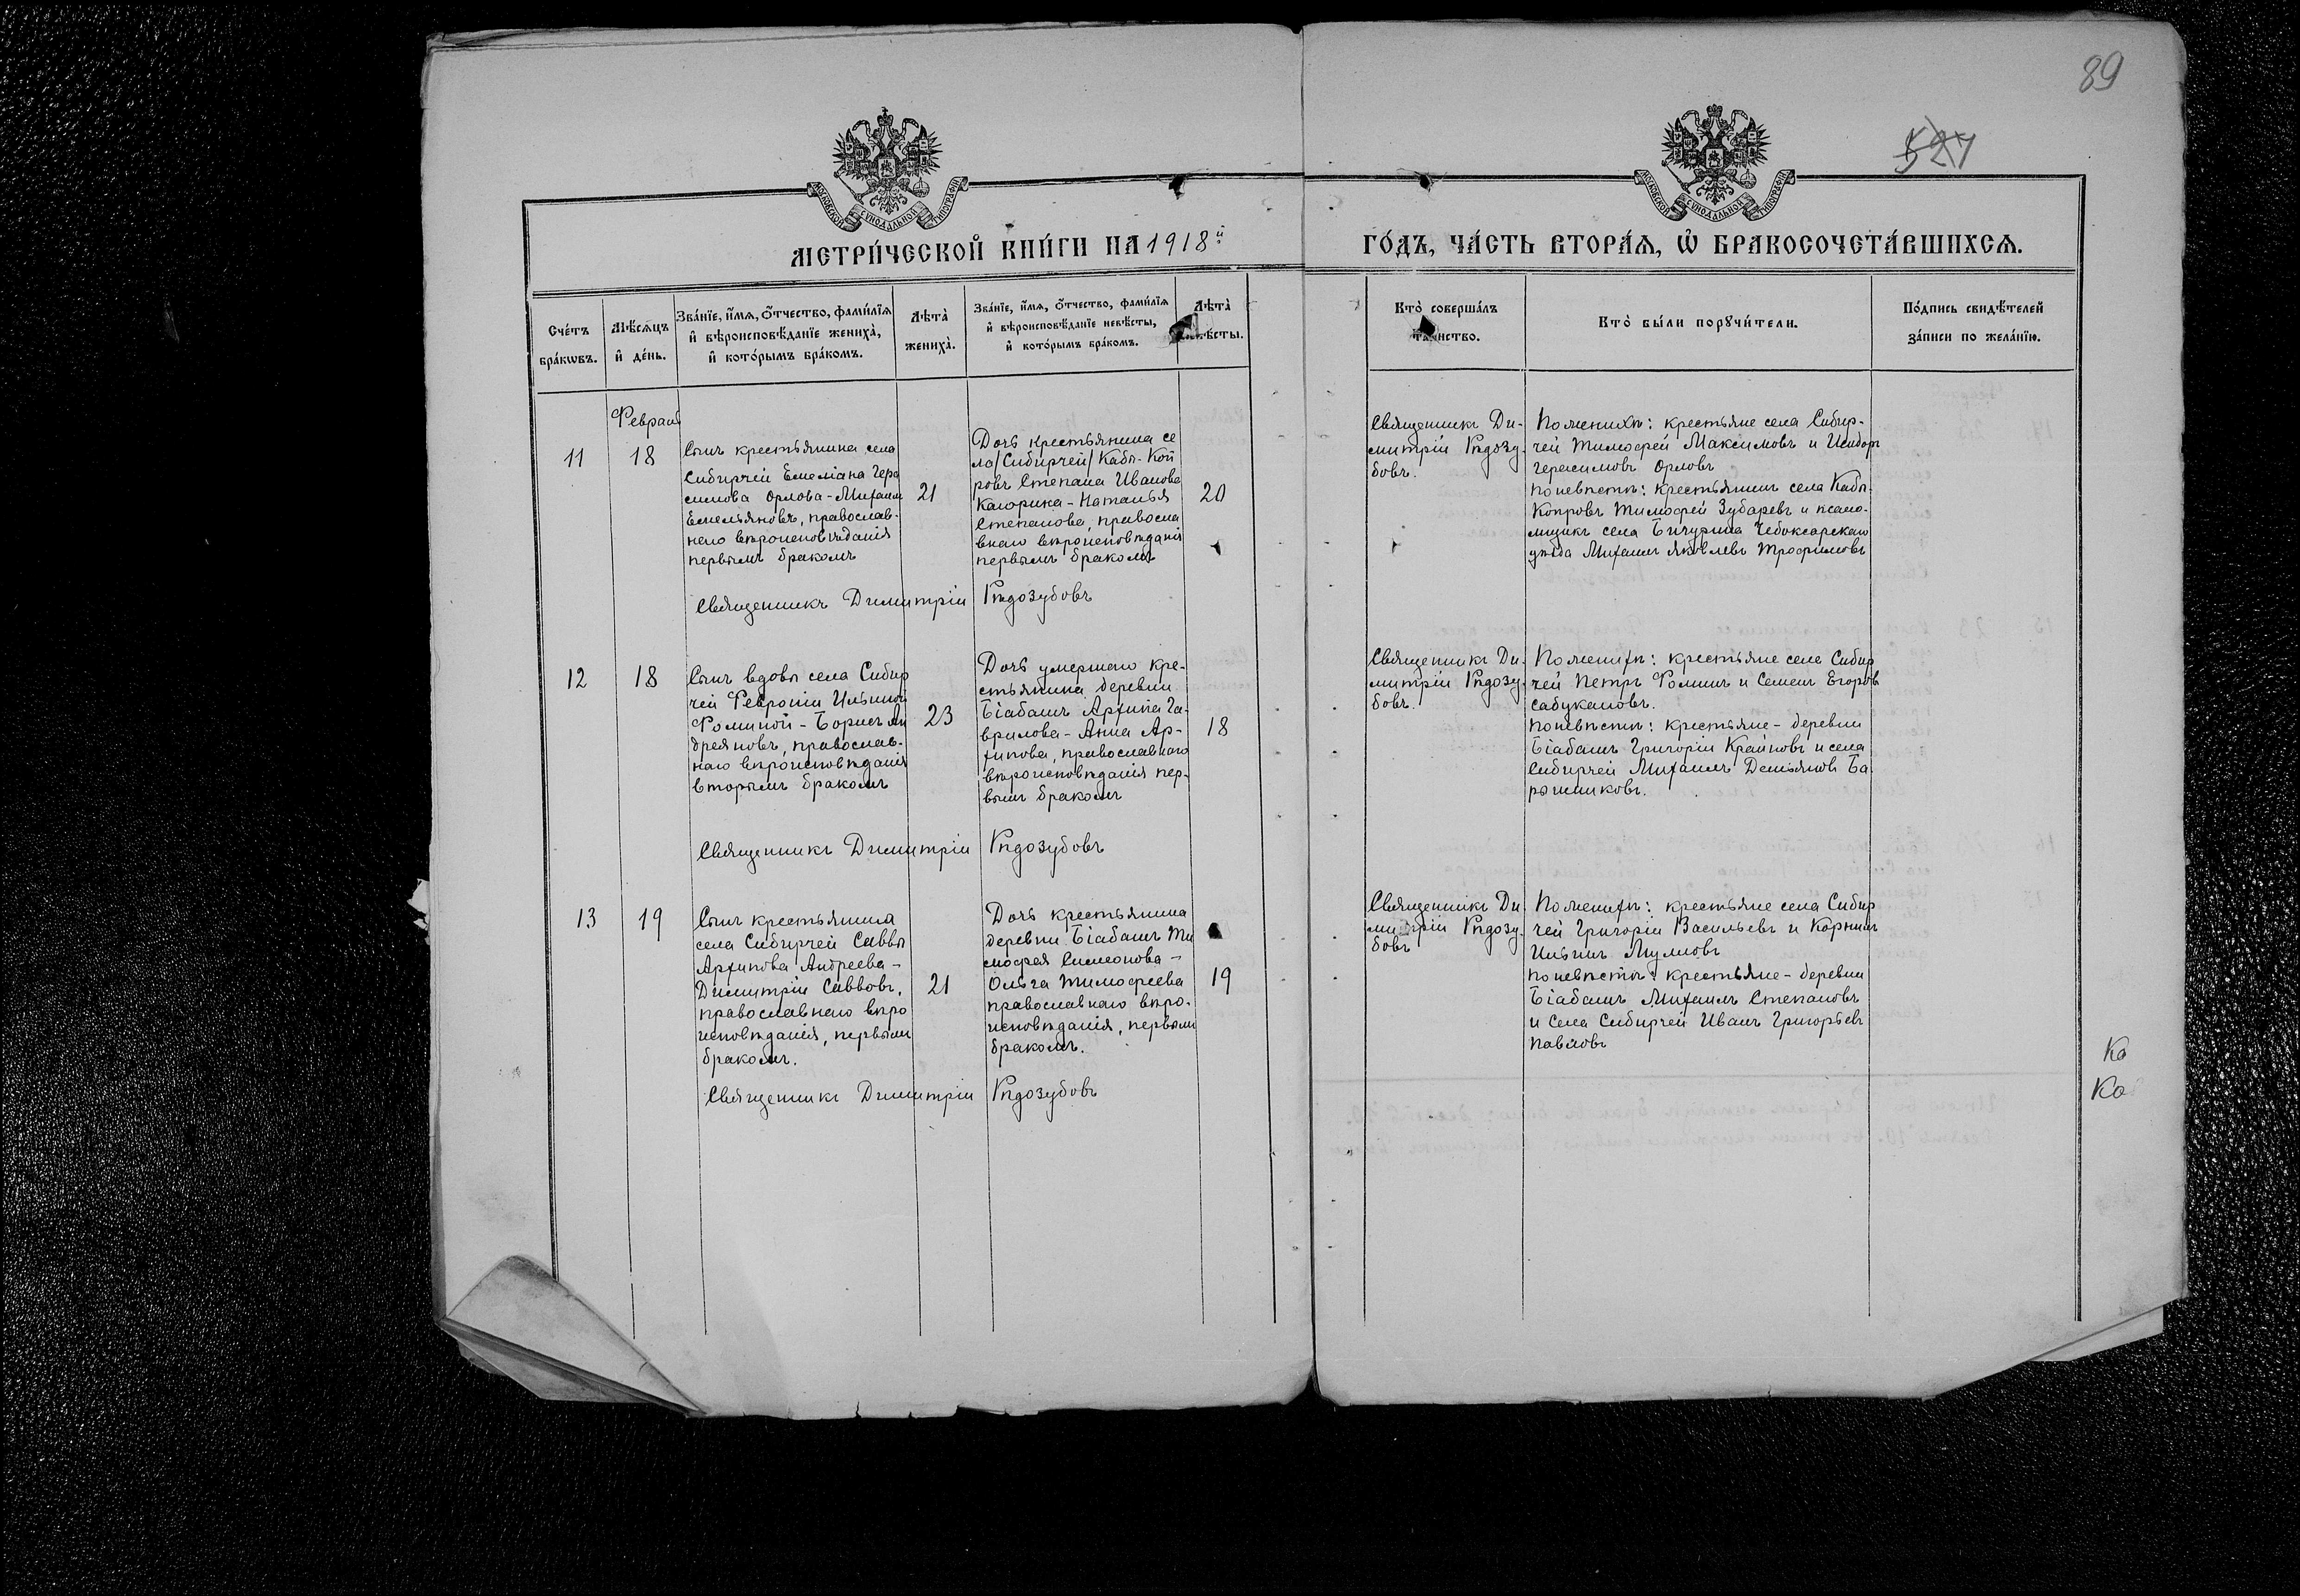 89
521
МОСКОВСКОЙ СУНОДАЛЬНОЙ ТИПОГРАФІИ
МОСКОВСКОЙ СУНОДАЛЬНОЙ ТИПОГРАФІИ
МЕТРИ́ЧЕСКОЙ КНИ́ГИ НА 1918й
ГО́ДЪ, ЧА́СТЬ ВТОРА́Ѧ, Ѽ БРАКОСОЧЕТА́ВШИХСѦ.
Сче́тъ
бра́кѡвъ.
Мѣ́сѧцъ
и҆ де́нь.
Зва́нїе, и҆́мѧ, ѻ҆́тчество, фами́лїѧ
и҆ вѣроисповѣ́данїе жениха̀,
и҆ кото́рымъ бра́комъ.
Лѣ́та̀
жениха̀.
Зва́нїе, и҆́мѧ, ѻ҆́тчество, фами́лїѧ
и҆ вѣроисповѣ́данїе невѣ́сты,
и҆ кото́рымъ бра́комъ.
Лѣ́та̀
невѣ́сты.
Кто̀ соверша́лъ
та́инство.
Кто̀ бы́ли порꙋчи́тели.
По́дпись свидѣ́телей
за́писи по жела́нїю.
Февраль
11
18
Сынъ крестьянина села
Сибирчей Емеліана Гера
симова Орлова - Михаилъ
Емельяновъ, православ-
наго вѣроисповѣданія
первымъ бракомъ
21
Дочь крестьянина се
ла/Сибирчей/ Кабы-Коп
ровъ Степана Иванова
Кагорина - Наталья
Степанова, правосла
внаго вѣроисповѣданія
первымъ бракомъ
20
Священникъ Ди-
митрій Рѣдозу-
бовъ.
По женихѣ: крестьяне села Сибир-
чей Тимофей Максимовъ и Исидоръ
Герасимовъ Орловъ
по невѣстѣ: крестьянинъ села Кабы-
Копровъ Тимофей Зубаревъ и псало-
мщикъ села Бичурина Чебоксарскаго
уѣзда Михаилъ Яковлевъ Трофимовъ
Священникъ Димитрій Рѣдозубовъ
12
18
Сынъ вдовы села Сибир
чей Февроніи Ильиной
Фоминой - Борисъ Ан
дреяновъ, православ-
наго вѣроисповѣданія
вторымъ бракомъ
23
Дочь умершаго кре-
стьянина деревни
Біабашъ Архипа Га-
врилова - Анна Ар-
хипова, православнаго
вѣроисповѣданія пер-
вымъ бракомъ
18
Священникъ Ди-
митрій Рѣдозу-
бовъ.
По женихѣ: крестьяне села Сибир
чей Петръ Фоминъ и Семенъ Егоровъ
Сабукановъ.
по невѣстѣ: крестьяне - деревни
Біабашъ Григорій Крайновъ и села
Сибирчей Михаилъ Демьяновъ Ба
рышниковъ.
Священникъ Димитрій Рѣдозубовъ
13
19
Сынъ крестьянина
села Сибирчей Саввы
Архипова Андреева -
Димитрій Саввовъ,
православнаго вѣро
исповѣданія, первымъ
бракомъ.
21
Дочь крестьянина
деревни Біабашъ Ти
мофея Симеонова -
Ольга Тимофеева
православнаго вѣро-
исповѣданія, первымъ
бракомъ.
19
Священникъ Ди
митрій Рѣдозу-
бовъ
По женихѣ: крестьяне села Сибир
чей Григорій Васильевъ и Корнилъ
Ильинъ Мулловъ
по невѣстѣ: крестьяне - деревни
Біабашъ Михаилъ Степановъ
и села Сибирчей Иванъ Григорьевъ
Павловъ
Священникъ Димитрій Рѣдозубовъ
Ко
Ко